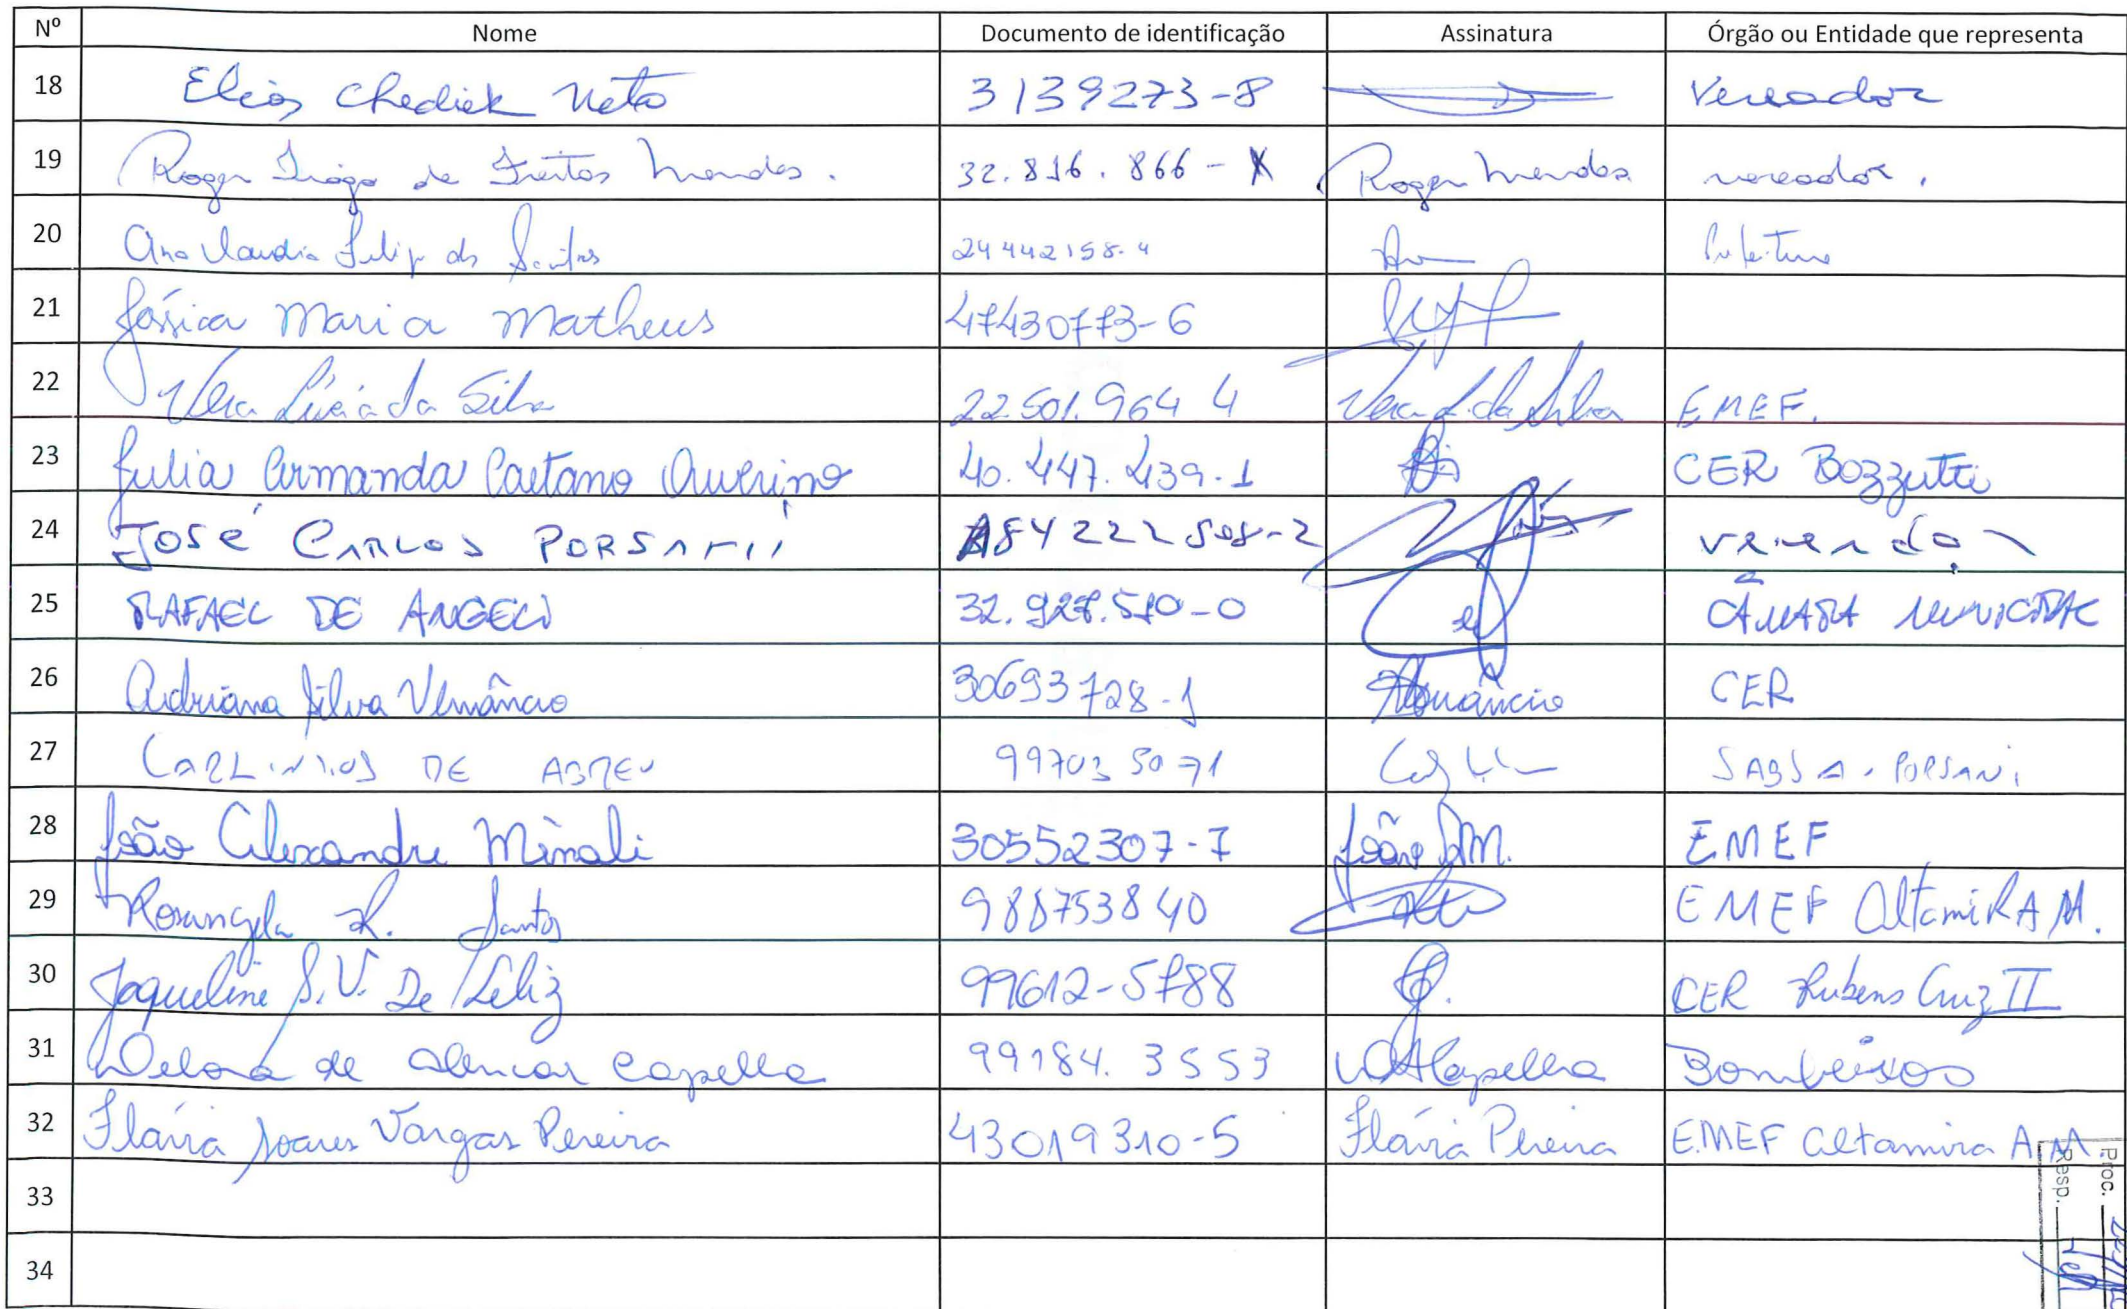 Nº Nome Documento de identificação Assinatura Órgão ou Entidade que representa
18 Elias Chediek Neto 3139273-8 Vereador
19 Roger Tiago de Freitas Mendes. 32.816.866-X Roger Mendes vereador.
20 Ana Claudia Felip dos Santos 24442158-4 Prefeitura
21 Jéssica Maria Matheus 47430773-6
22 Vera Lúcia da Silva 22.501.964 4 Vera L. da Silva EMEF.
23 Julia Armanda Caetano Querino 40.447.439-1 CER Bozzutti
24 José Carlos Porsani vereador
25 RAFAEL DE ANGELI 32.927.510-0 CÂMARA MUNICIPAL
26 Adriana Silva Venâncio 30693728-1 Venâncio CER
27 CARLINHOS DE ABREU 997035071 PORSANI
28 João Alexandre Minali 30552307-7 João A.M. EMEF
29 Rosangela R. Santos 988753840 EMEF AltamiRA M.
30 Jaqueline S.V. De Feliz 99612-5788 CER Rubens Cruz II
31 de Alencar Capella 99184.3553 Capella Bombeiros
32 Flávia Soares Vargas Pereira 43019310-5 Flávia Pereira EMEF Altamira A.M.
33
34
Proc.
Resp.